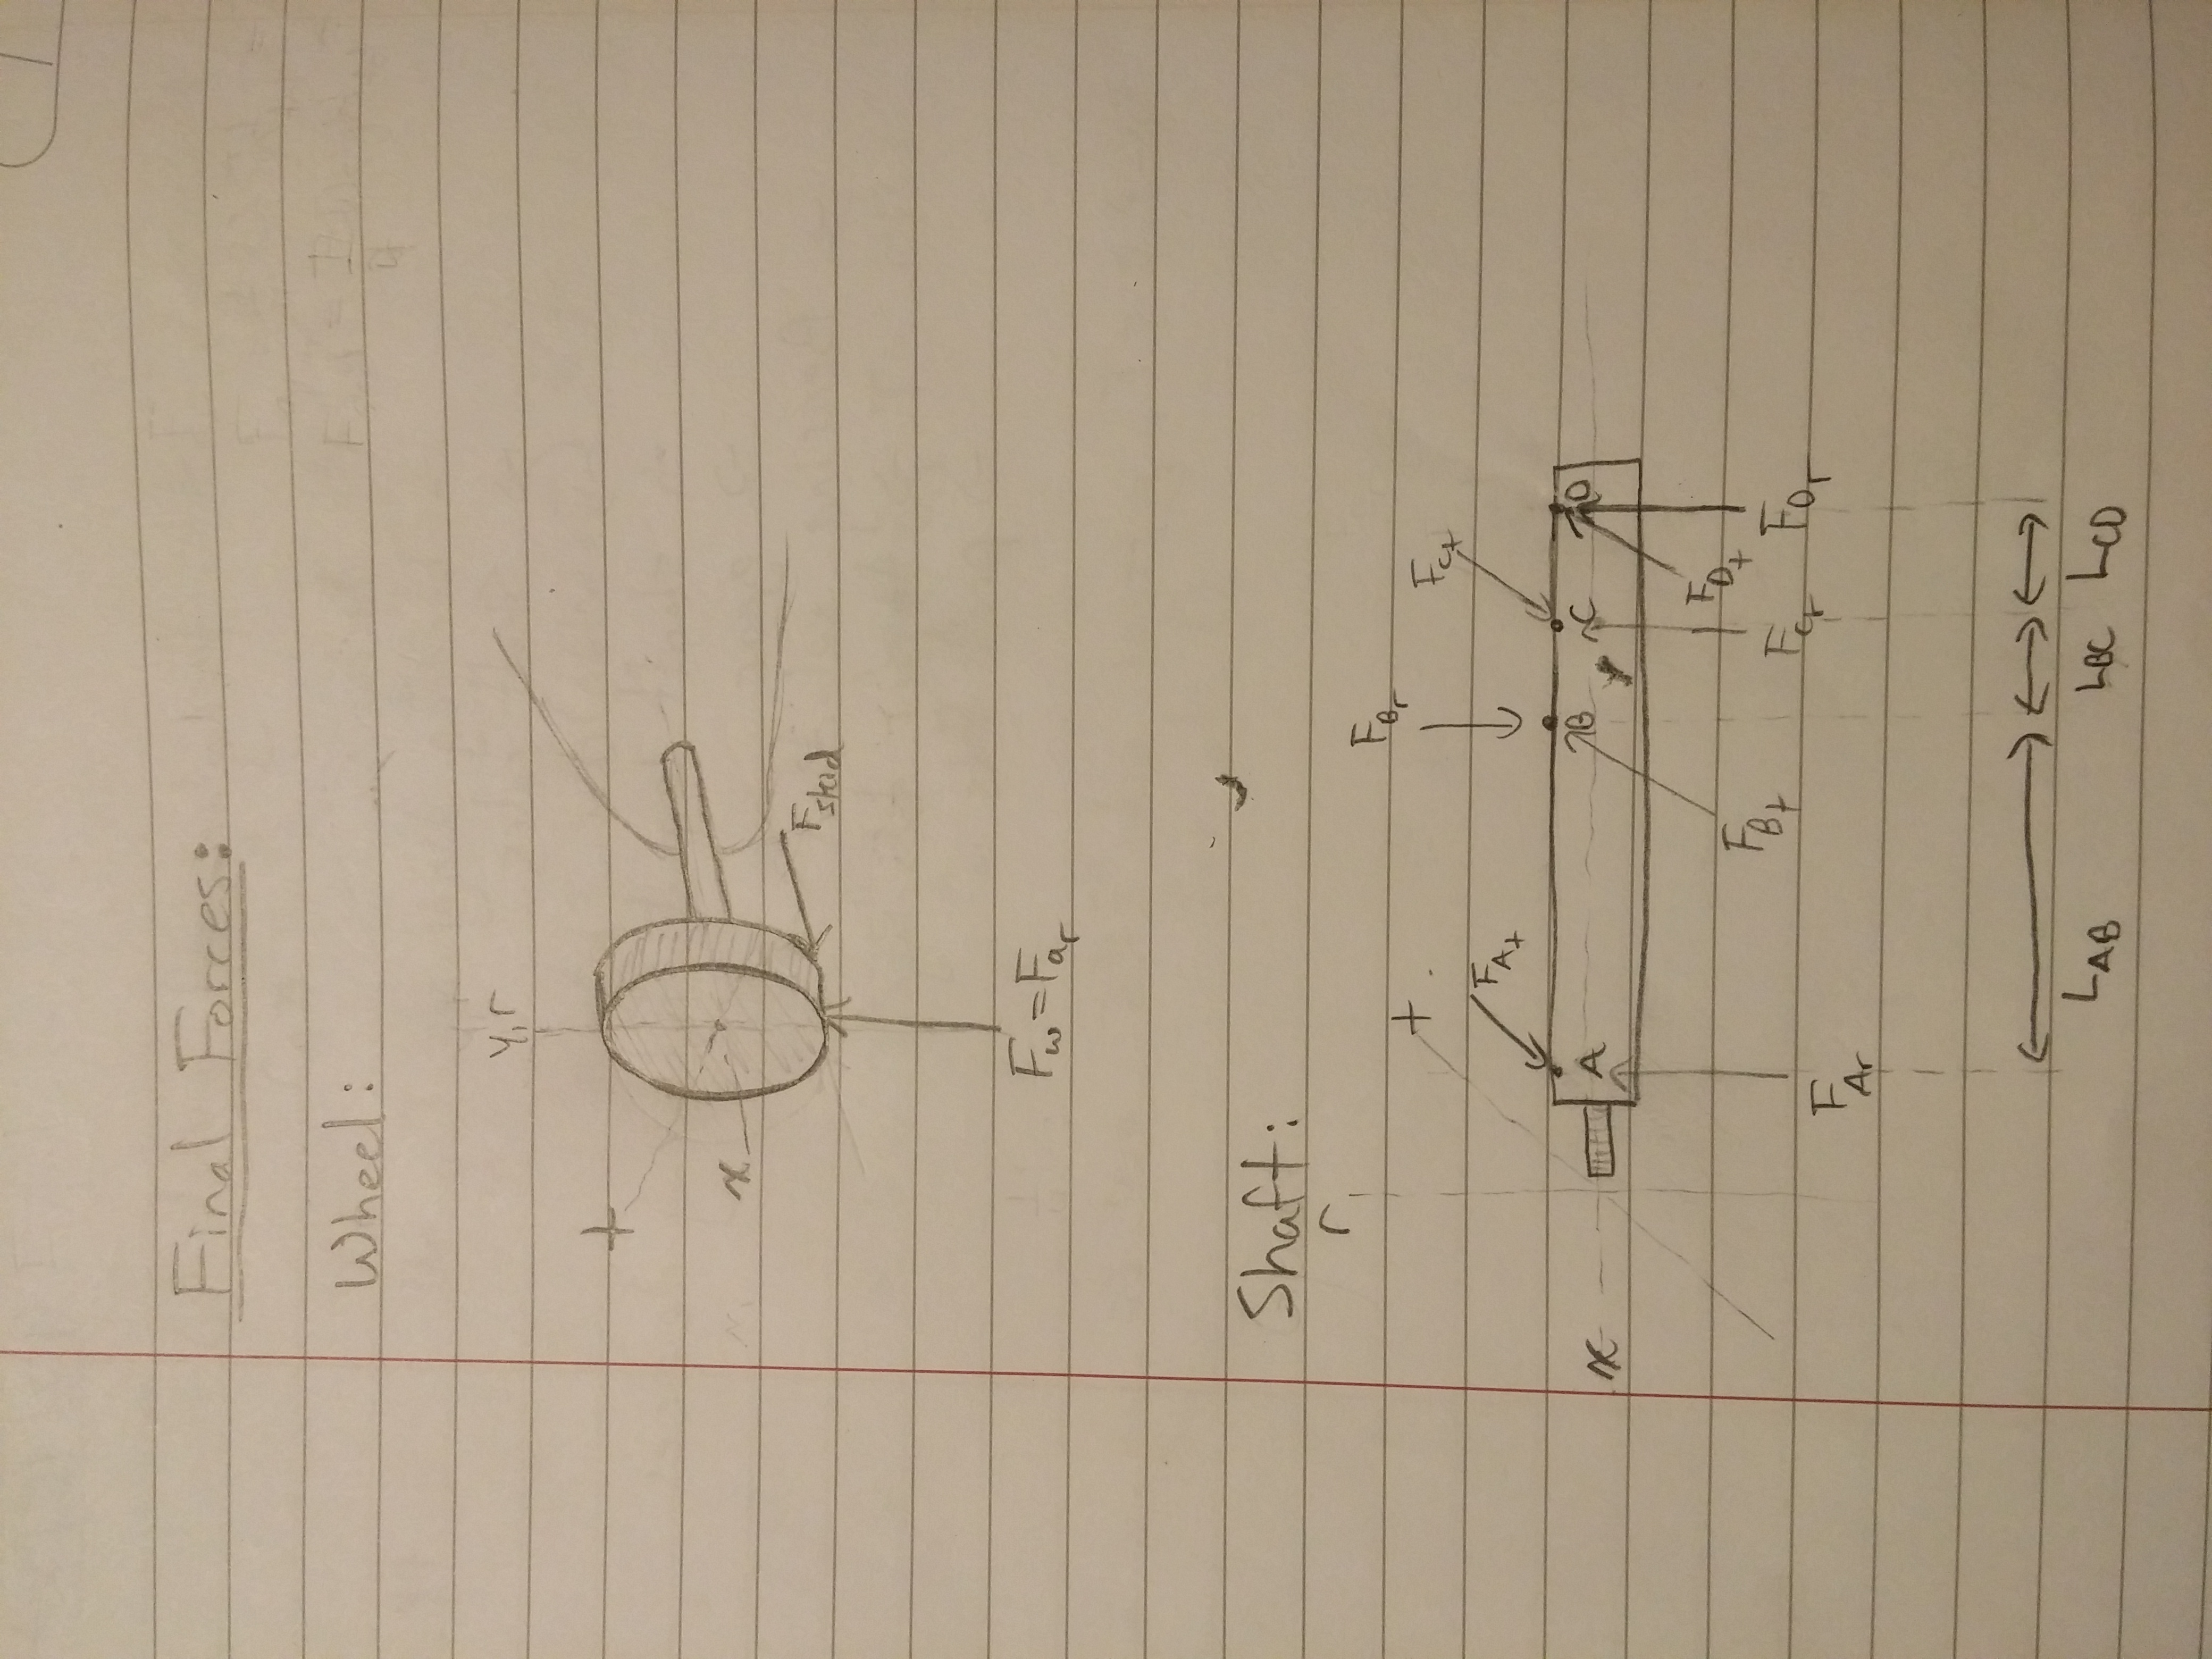 Final Forces:
Wheel:
y, r
t
x
F_skid
F_w = F_ar
Shaft:
r
F_Br
t
F_Ct
F_At
x
A
B
C
D
F_Bt
F_Dt
F_Cr
F_Dr
F_Ar
L_AB
L_BC
L_CD